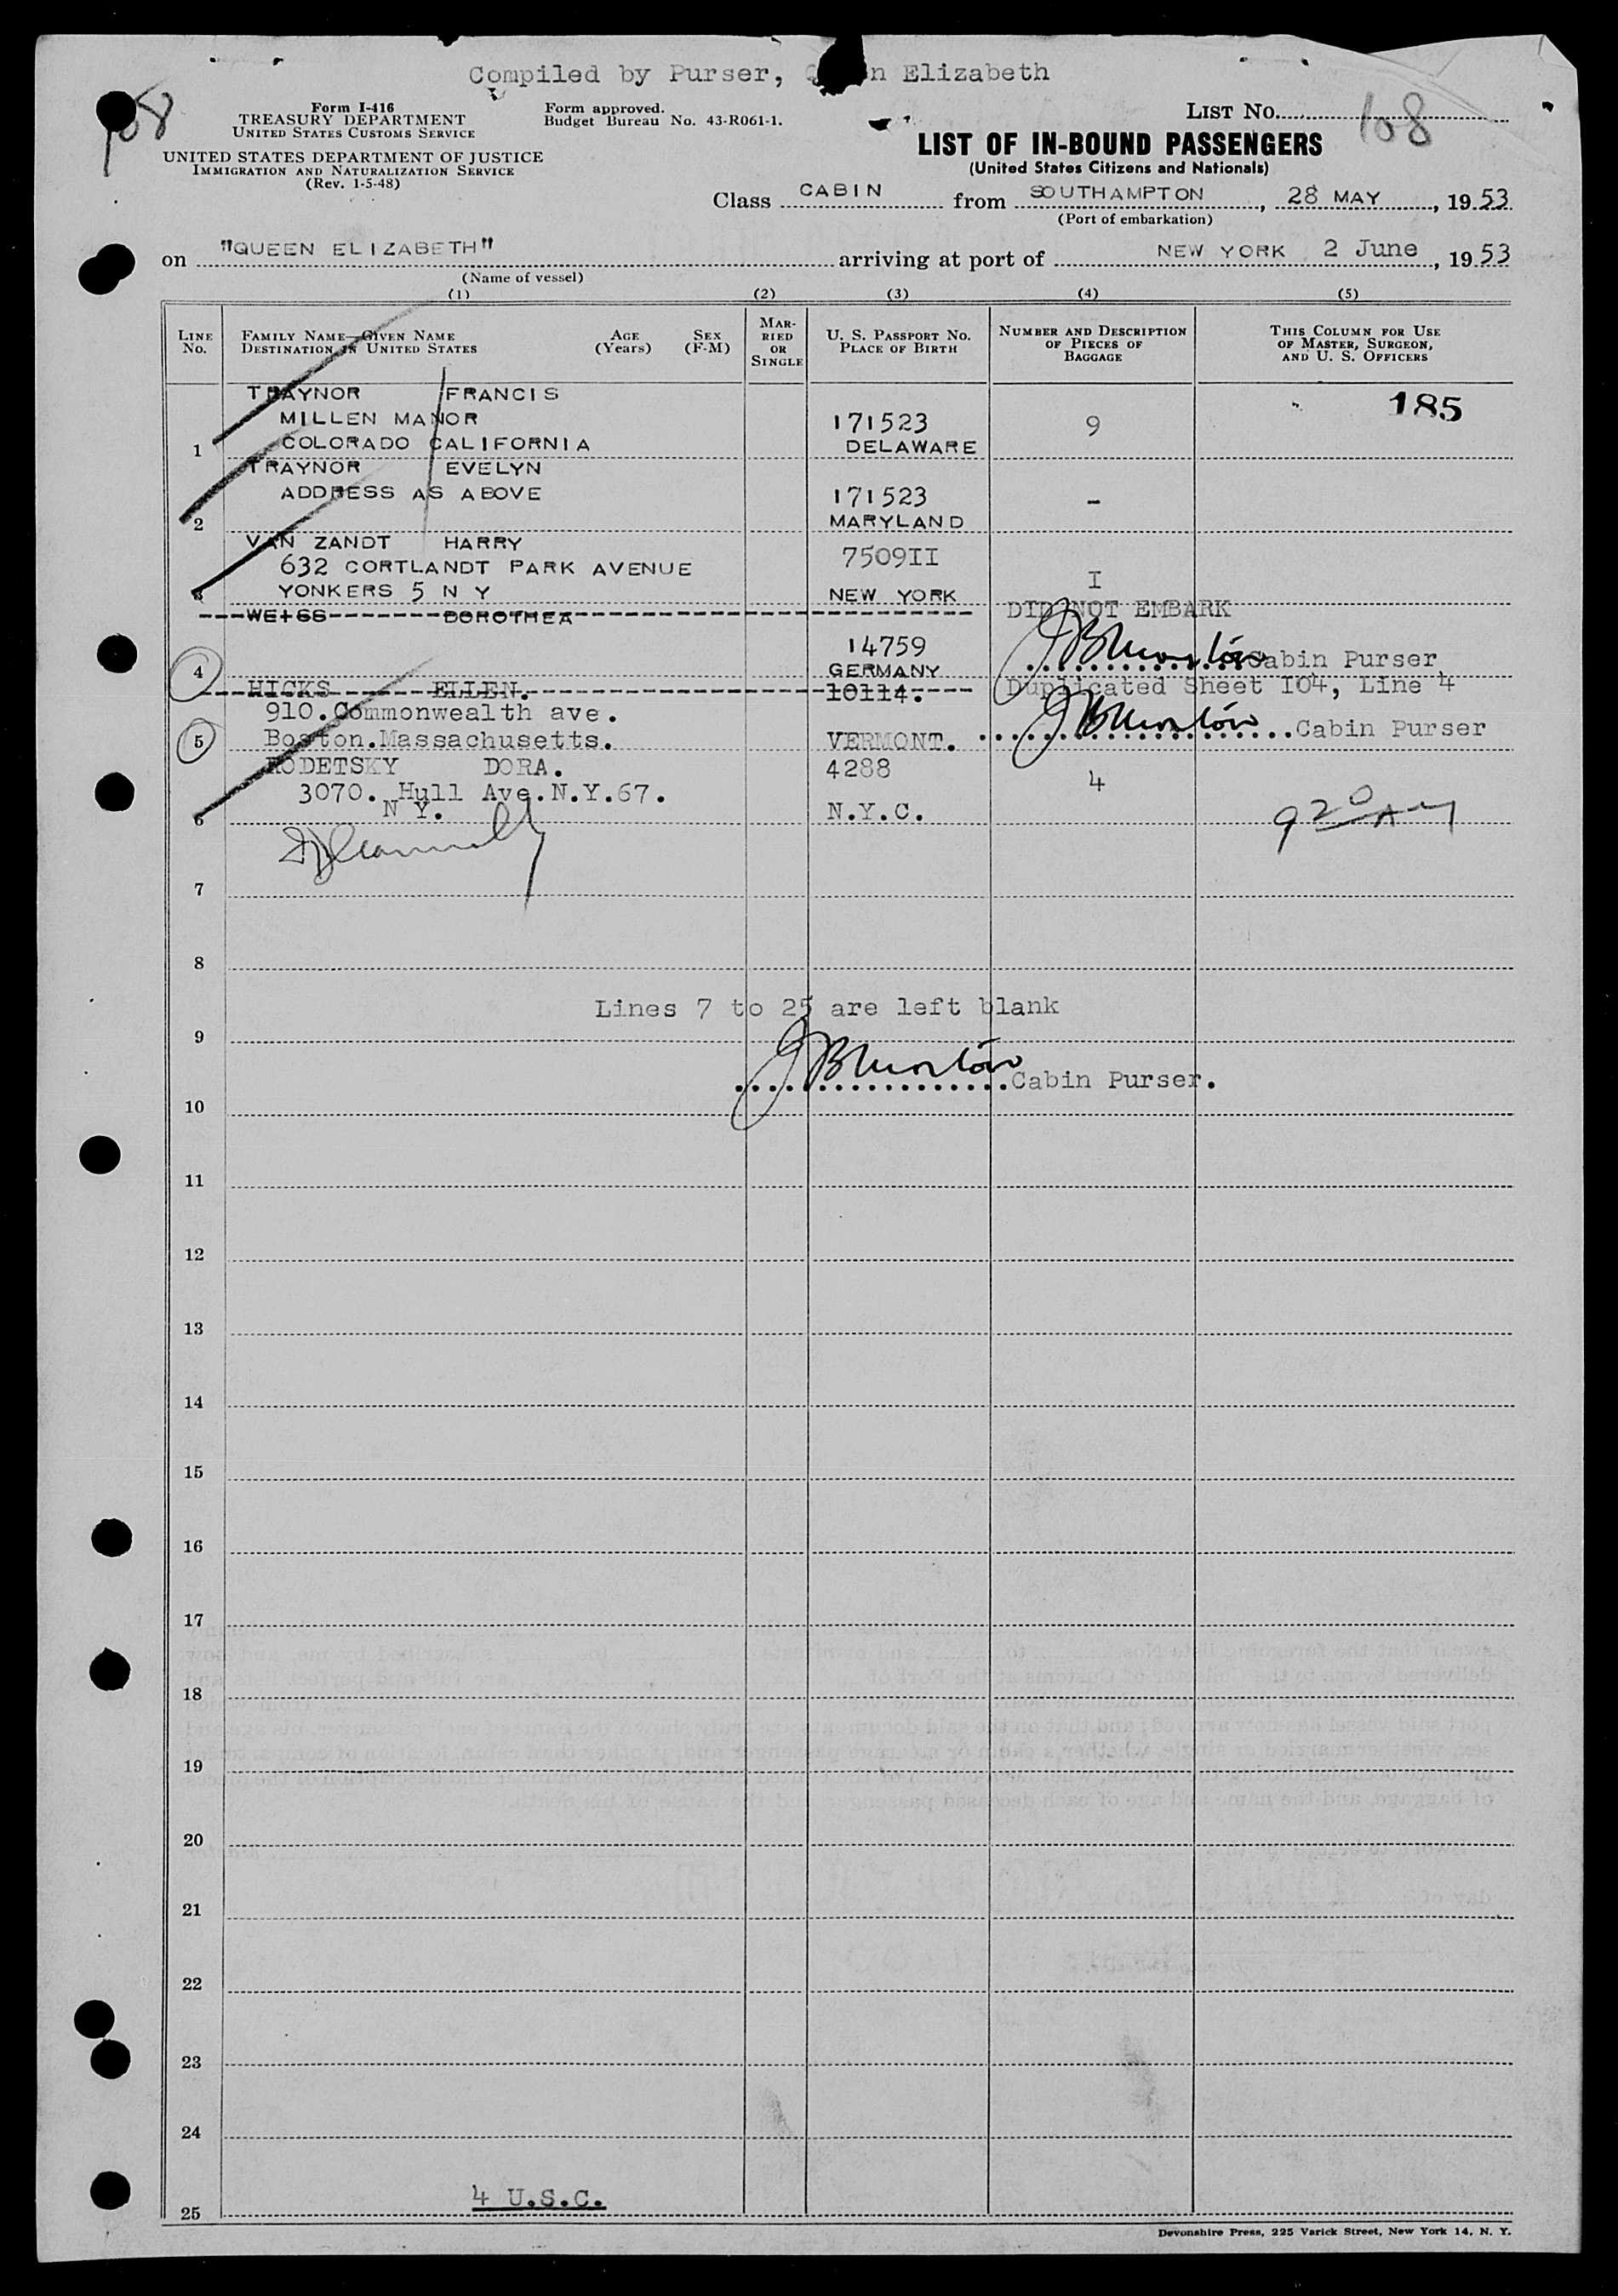 Compiled by Purser, Q n Elizabeth
108
Form I-416
TREASURY DEPARTMENT
UNITED STATES CUSTOMS SERVICE
UNITED STATES DEPARTMENT OF JUSTICE
IMMIGRATION AND NATURALIZATION SERVICE
(Rev. 1-5-48)
Form approved.
Budget Bureau No. 43-R061-1.
LIST NO. 108
LIST OF IN-BOUND PASSENGERS
(United States Citizens and Nationals)
Class CABIN from SOUTHAMPTON, 28 MAY, 1953
(Port of embarkation)
on "QUEEN ELIZABETH" arriving at port of NEW YORK 2 June, 1953
(Name of vessel)
(1) (2) (3) (4) (5)
LINE NO.
FAMILY NAME—GIVEN NAME
DESTINATION IN UNITED STATES
AGE (Years)
SEX (F-M)
MARRIED OR SINGLE
U. S. PASSPORT NO.
PLACE OF BIRTH
NUMBER AND DESCRIPTION OF PIECES OF BAGGAGE
THIS COLUMN FOR USE OF MASTER, SURGEON, AND U. S. OFFICERS
TRAYNOR FRANCIS 185
MILLEN MANOR 171523 9
1 COLORADO CALIFORNIA DELAWARE
TRAYNOR EVELYN
ADDRESS AS ABOVE 171523 -
2 MARYLAND
VAN ZANDT HARRY
632 CORTLANDT PARK AVENUE 7509II
3 YONKERS 5 N Y NEW YORK I
WEISS DOROTHEA DID NOT EMBARK
14759
4 GERMANY Cabin Purser
HICKS ELLEN. 10114. Duplicated Sheet I04, Line 4
910.Commonwealth ave.
5 Boston.Massachusetts. VERMONT. Cabin Purser
RODETSKY DORA. 4288
3070. Hull Ave.N.Y.67. 4
6 N Y. N.Y.C. 920 AM
7
8
Lines 7 to 25 are left blank
9
Cabin Purser.
10
11
12
13
14
15
16
17
18
19
20
21
22
23
24
4 U.S.C.
25
Devonshire Press, 225 Varick Street, New York 14, N. Y.